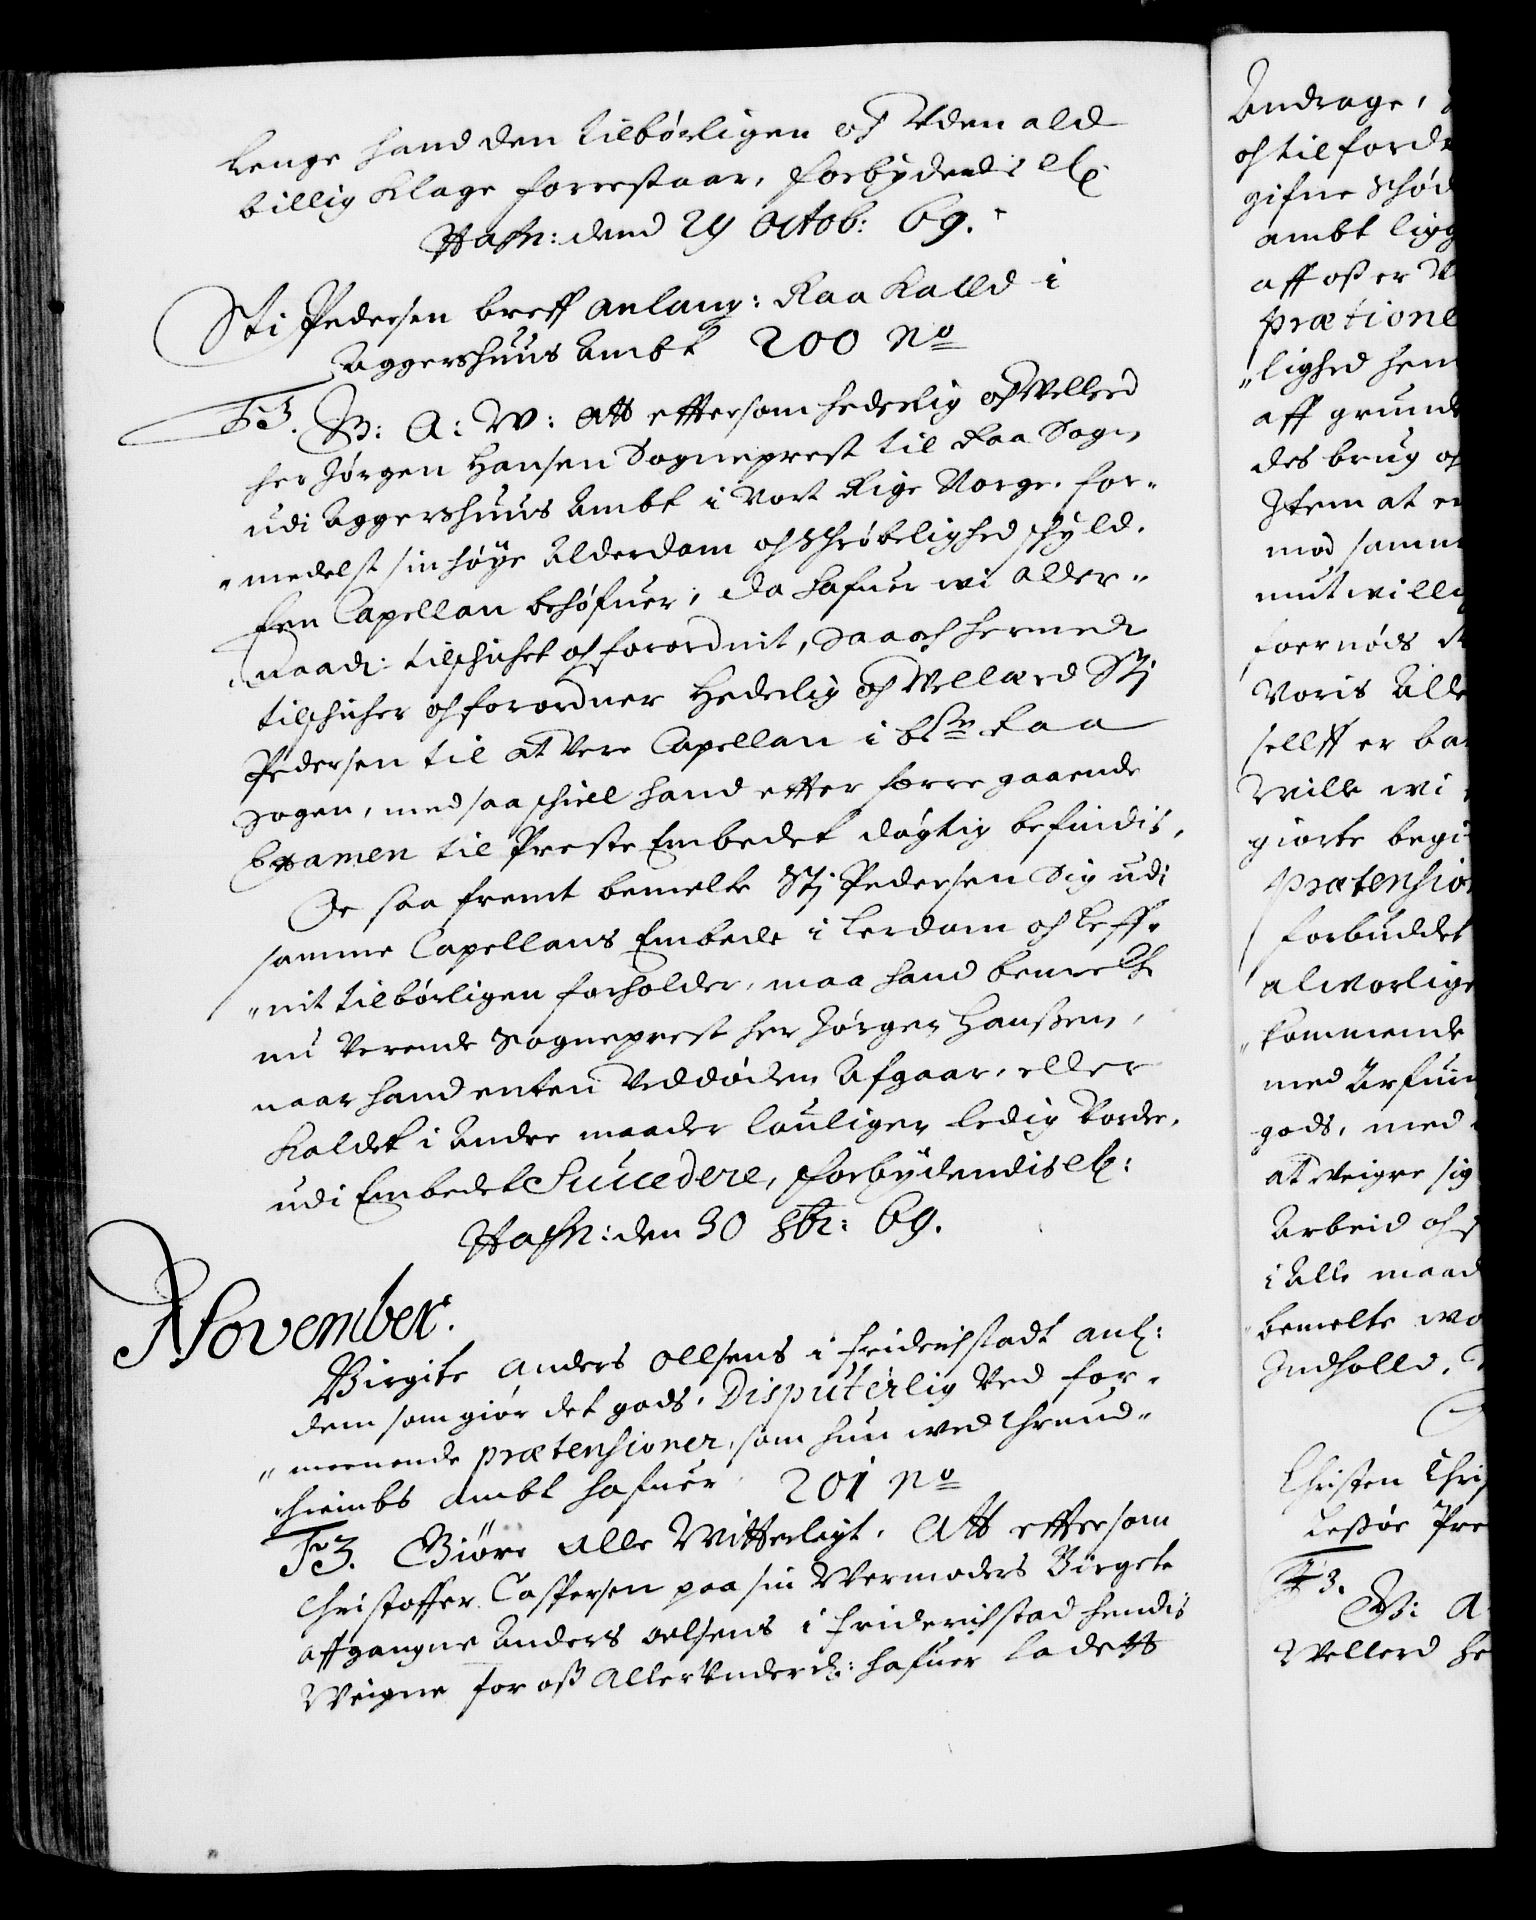 lenge hand den tilbørligen oc Uden ald
billig Klage forrestaar, forbydendis etc
Hafn: dend 29 Octob: 69.
Sti Pedersen breff anlang: Raa Kalld i
Aggershuus Ambt 200 No
F3. G: A: W: Att efftersom hederlig oc Vellerd
her Jørgen Hansen Sogneprest til Raa Sogn
udi Aggershuus Ambt i Vort Rige Norge, for-
"medelst sin høye Alderdom oc schrøbelighed schyld.
Een Capellan behøfuer, da hafuer wi Aller-
naad: tilschichet oc forordnit, saa oc hermed
tilschicher oc forordner Hederlig oc Vellærd Sti
Pedersen til at Vere Capellan i bte Raa
Sogen, med saa schiell hand effter forregaaende
Examen til Preste Embedet døgtig befindis,
Oc saa fremt bemelte Sti Pedersen Sig udi
samme Capellans Embede i Lerdom oc Leff-
"nit tilbørligen forholder, maa hand bemelte
nu Verende Sogneprest her Jørgen Hanssen,
naar hand enten Ved døden Afgaar, eller
Kaldet i Andre maader louligen ledig Vorder,
udi Embedet Succedere, forbydendis etc:
Hafn: den 30 8br: 69.
November.
Birgite Anders Ollsens i Friderichstadt anl:
dem som giør det gods, Disputerlig Ved for-
"meenende prætensioner, som hun wed Thrund-
hiembs Ambt hafuer 201 No
F3. Giøre alle Witterligt, Att eftersom
Christoffer Caspersen paa sin Wermoders Birgete
affgangne Anders Oelsens i Friderichstad hendis
Weigne for oss Allerunderd: hafuer ladett
Andrage,
oc tilford
gifne schød
ambt ligg
aff oss er
prætione
"lighed hen
aff grund
des brug oc
Item at e
mod samm
mutwillig
foernøds
Voris Alle
sellff er ba
Wille wi
giorte begi
Prætension
forbuddet
alworlige
"kommende
med Arfui
gods, med
at Weigre sig
Arbeid oc
i Alle maad
bemelte wo
Indholld,
Christen Chri
Lessøe Pre
F3.
G: A
Wellerd he